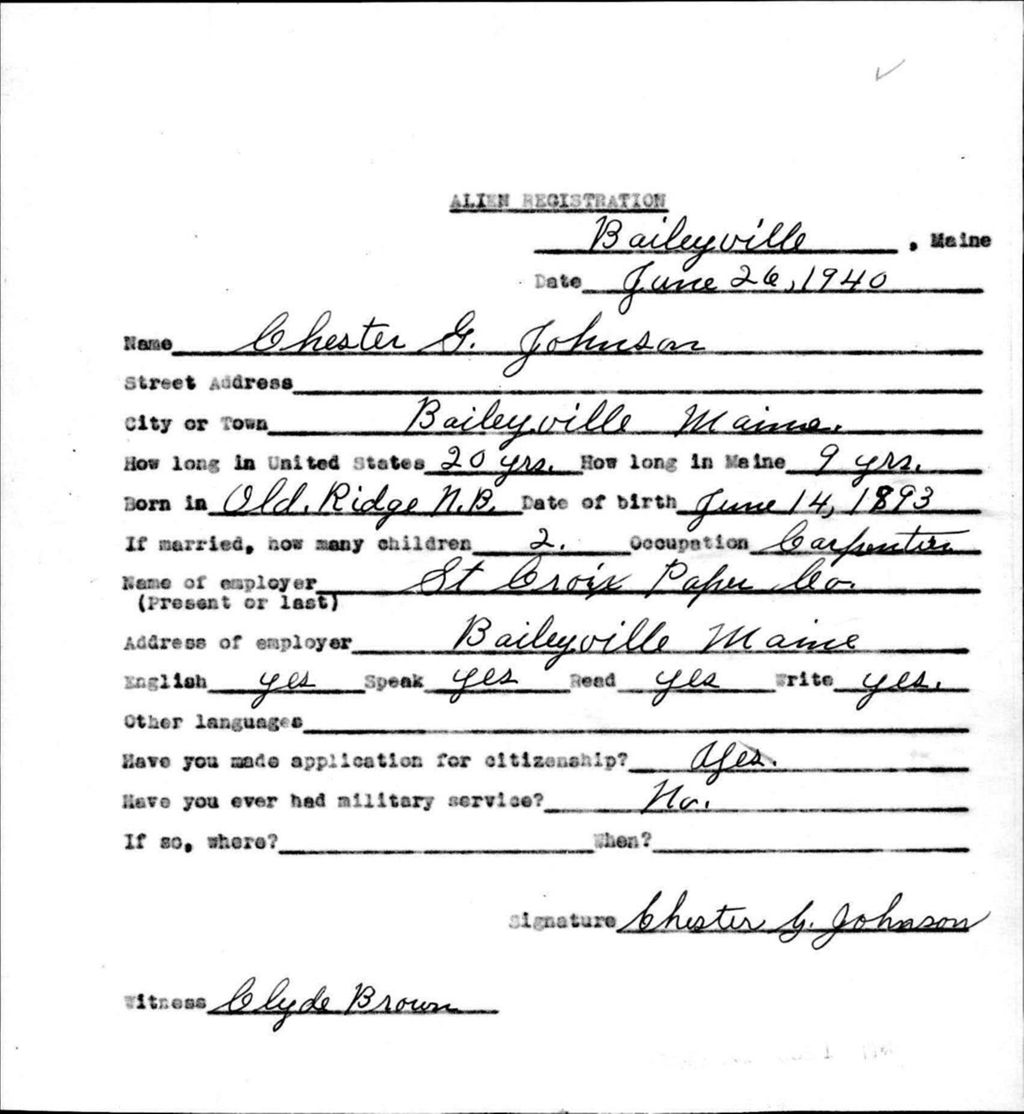 ALIEN REGISTRATION
Baileyville , Maine
Date June 26, 1940
Name Chester G. Johnson
Street Address
City or Town Baileyville Maine.
How long in United States 20 yrs. How long in Maine 9 yrs.
Born in Old. Ridge N.B. Date of birth June 14, 1893
If married, how many children 2. Occupation Carpenter
Name of employer St Croix Paper Co.
(Present or last)
Address of employer Baileyville Maine
English yes Speak yes Read yes Write yes.
Other languages
Have you made application for citizenship? Yes.
Have you ever had military service? No.
If so, where? When?
Signature Chester G. Johnson
Witness Clyde Brown